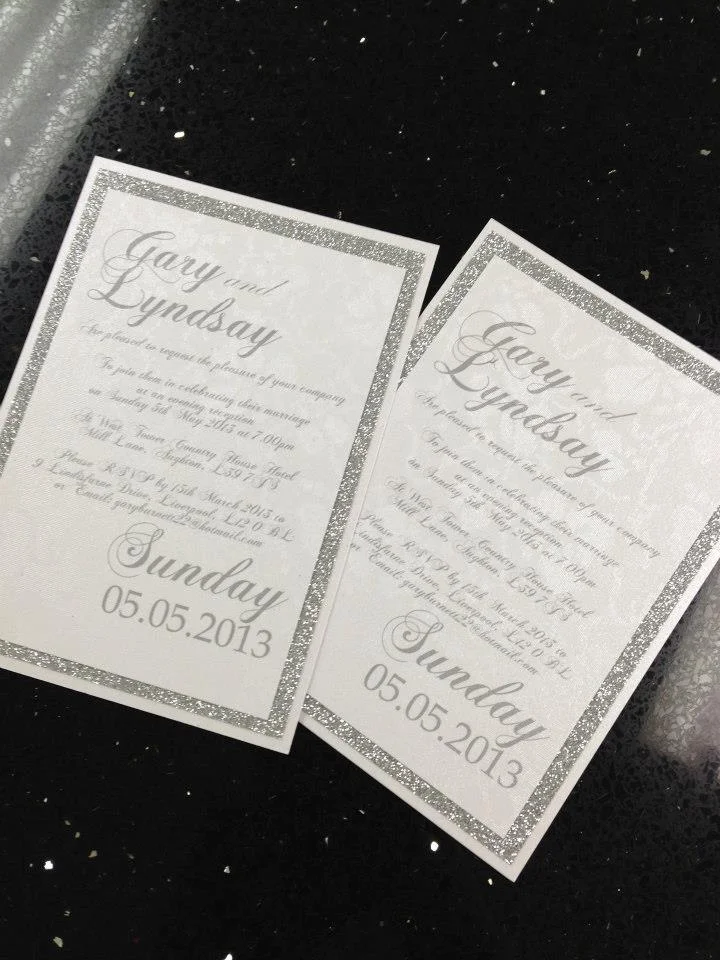 Gary and
Lyndsay
Are pleased to request the pleasure of your company
To join them in celebrating their marriage
at an evening reception
on Sunday 5th May 2013 at 7.00pm
At West Tower Country House Hotel
Mill Lane, Aughton, L39 7
Please RSVP by 15th March 2013 to
9 Lindisfarne Drive, Liverpool, L12 0 BL
or Email: garyburnett22@hotmail.com
Sunday
05.05.2013
Gary and
Lyndsay
Are pleased to request the pleasure of your company
To join them in celebrating their marriage
at an evening reception
on Sunday 5th May 2013 at 7.00pm
At West Tower Country House Hotel
Mill Lane, Aughton, L39 7
Please RSVP by 15th March 2013 to
Lindisfarne Drive, Liverpool, L12 0 BL
or Email: garyburnett22@hotmail.com
Sunday
05.05.2013